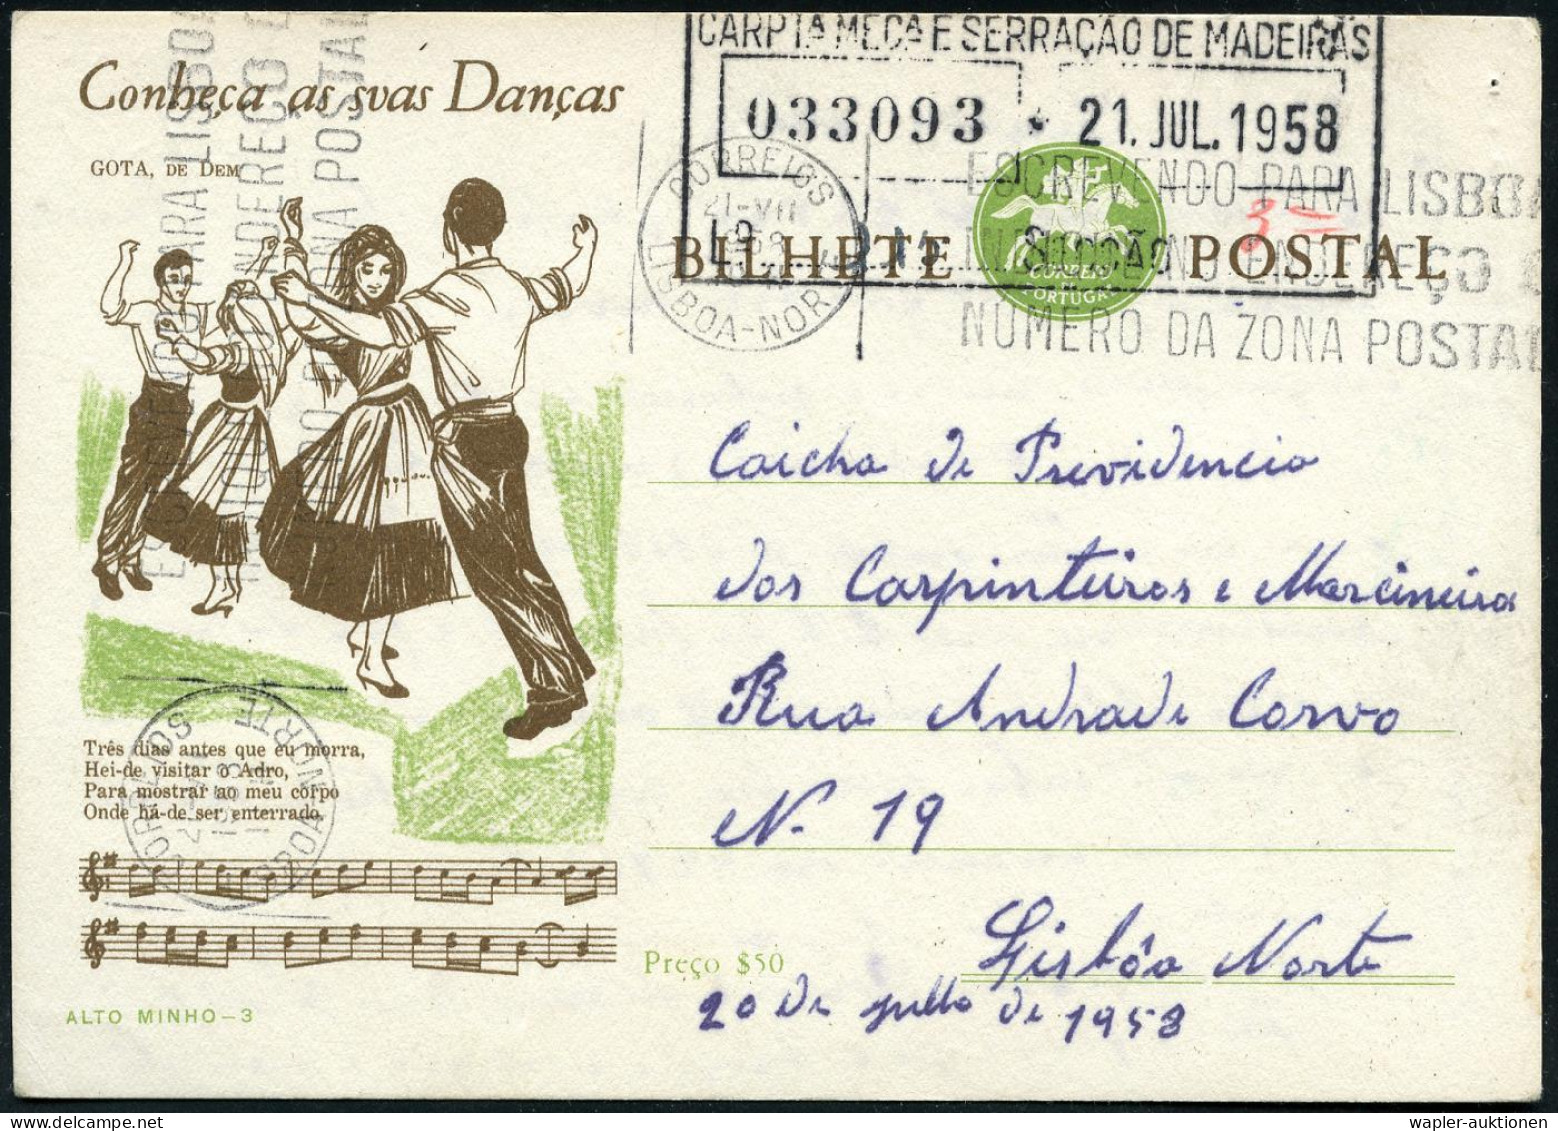 CARPTª MECª E SERRAÇÃO DE MADEIRAS
033093 * 21. JUL. 1958
Lº SECÇÃO
3=
Conheça as svas Danças
GOTA, DE DEM
CORREIOS
21-VII
1958
LISBOA-NOR
ESCREVENDO PARA LISBOA
NUMERO DA ZONA POSTAL
BILHETE POSTAL
CORREIO
PORTUGAL
Caicha de Previdencia
dos Carpinteiros e Marcineiros
Rua Andrade Corvo
N. 19
Lisbôa Norte
20 de julho de 1958
Três dias antes que eu morra,
Hei-de visitar o Adro,
Para mostrar ao meu corpo
Onde há-de ser enterrado.
Preço $50
ALTO MINHO — 3
wapler-auktionen